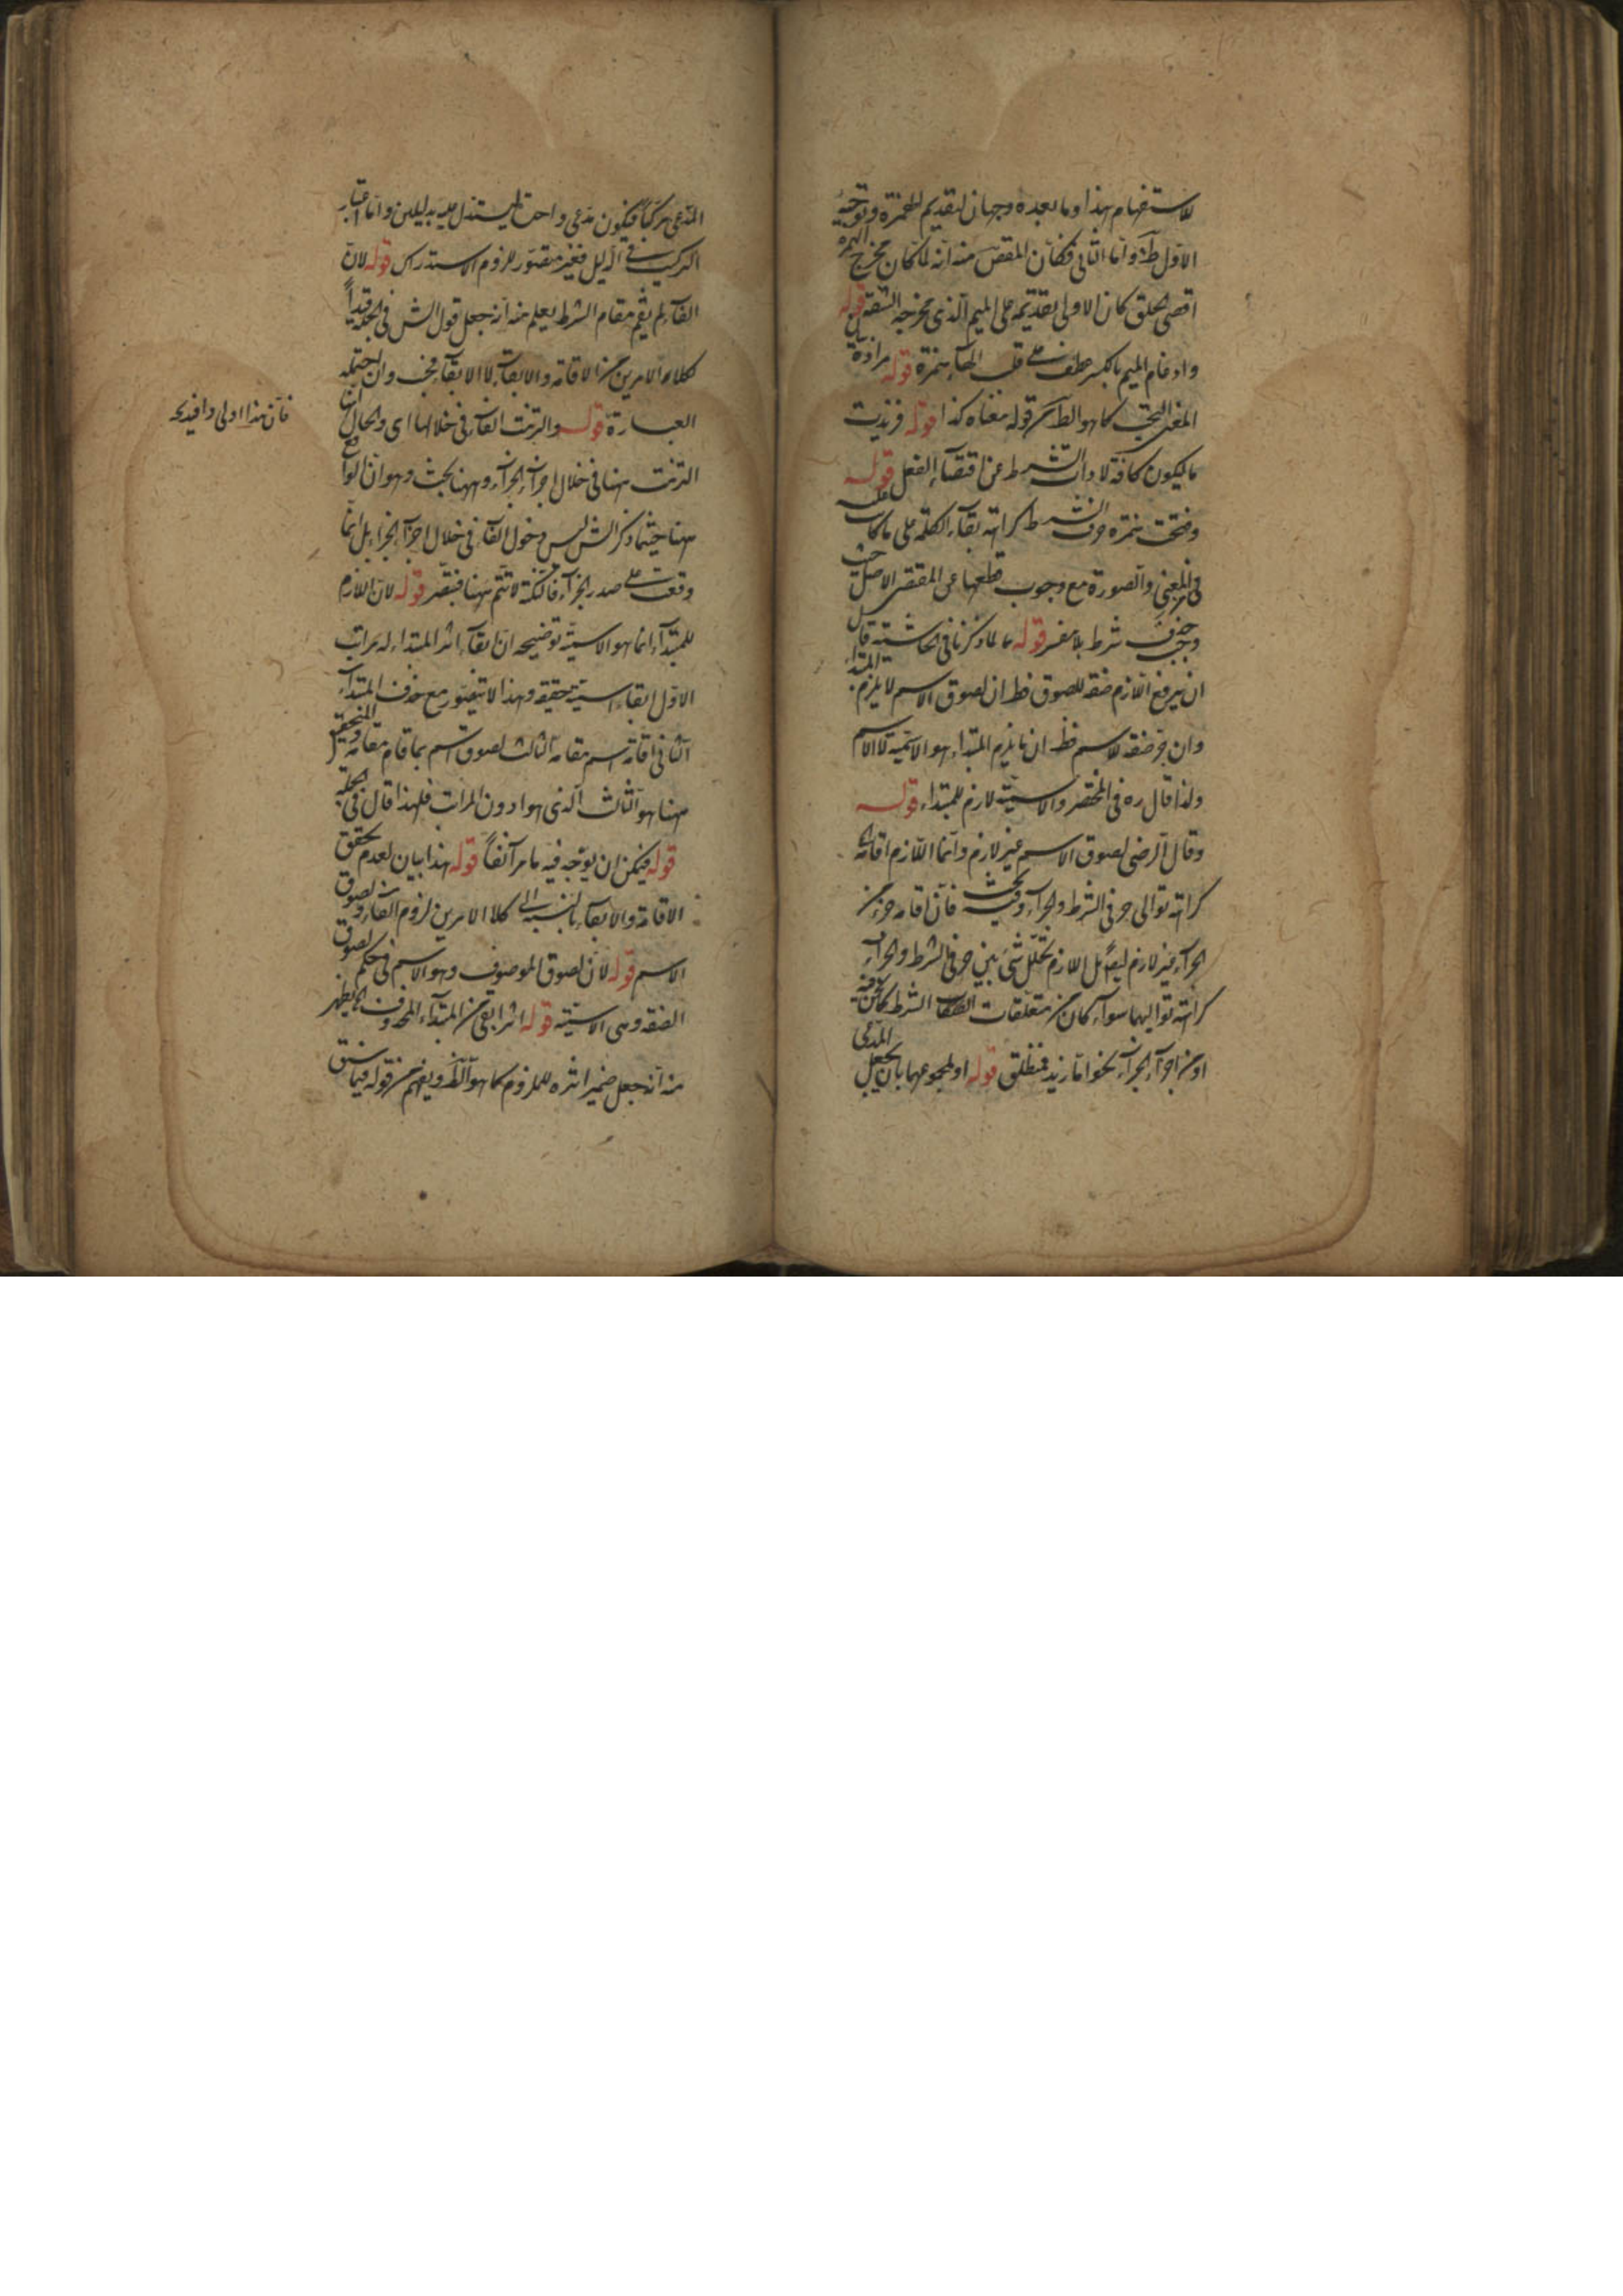 للاستفهام هذا وما بعده وجهان لتقديم الهمزة وتوجيه
الاول ظ واما الثانى فكان المقص منه انه لما كان مخرج الهمزة
اقصى الحلق كان الاولى تقديمه على الميم الذى مخرجه الشفة قوله
وادغام الميم بالكسر عطف على قلب الهاء همزة قوله مرادة
المعنى كما هو الظاهر قوله معناه كذا قوله فزيدت
ما ليكون كافة لاداة الشرط عن اقتضاء الفعل قوله
وفتحت همزة حرف الشرط كراهة بقاء الكلمة على ما كانت عليه
فى المعنى والصورة مع وجوب قطعها عن المقتضى الاصلى حيث
وجب حذف شرط بلا مفسر قوله لما ذكرنا فى الحاشية
ان يرفع اللازم صفة للصوق فظ ان لصوق الاسم لا يلزم المبتدأ
وان جر صفة للاسم فظ ان ما يلزم المبتداء هو الاسمية لا الاسم
ولذا قال ره فى المختصر والاسمية لازم للمبتداء قوله
وقال الرضى لصوق الاسم غير لازم وانما اللازم اقامة
كراهة توالى حرفى الشرط والجزاء وفيه بحث فان اقامة جزء من
الجزاء غير لازم ايضا بل اللازم تخلل شئ بين حرفى الشرط والجزاء
كراهة تواليهما سواء كان من متعلقات الشرط كما نحن فيه
او من اجزاء الجزاء نحو اما زيد فمنطلق قوله او لمجموعهما بان يجعل
المدعى
المدعى مركبا فيكون مدعى واحد يستدل عليه بدليلين واما اعتبار
التركيب فى الدليل فغير متصور للزوم الاستدراك قوله لان
الفاء لم يقم مقام الشرط يعلم منه انه جعل قول الش فى الجملة قيدا
لكلا الامرين من الاقامة والابقاء لا الابقاء فحسب وان احتمله
العبارة قوله والتزمت الفاء فى خلالها اى والحال انها
التزمت ههنا فى خلال اجزاء الجزاء وههنا بحث وهو ان الواقع
ههنا حيثما ذكر الش ليس دخول الفاء فى خلال اجزاء الجزاء بل انما
وقعت على صدر الجزاء فالنكتة لا تتم ههنا فتبصر قوله لان اللازم
للمبتدأ انما هو الاسمية توضيحه ان بقاء اثر المبتداء له مراتب
الاول ابقاء اسمية حقيقة وهذا لا يتصور مع حذف المبتدأ
الثانى اقامة اسم مقامه الثالث لصوق اسم بما قام مقامه والمتحقق
ههنا هو الثالث الذى هو ادون المراتب فلهذا قال فى الجملة
قوله فيمكن ان يوجه فيه ما مر آنفا قوله هذا بيان لعدم تحقق
الاقامة والابقاء بالنسبة الى كلا الامرين لزوم الفاء ولصوق
الاسم قوله لان لصوق الموصوف وهو الاسم فى حكم لصوق
الصفة وهى الاسمية قوله اثر ابقى من المبتداء المحذوف يظهر
منه انه جعل ضمير اثره للملزوم كما هو الظ ويفهم من قوله فيما سبق
فان هذا اولى وافيد